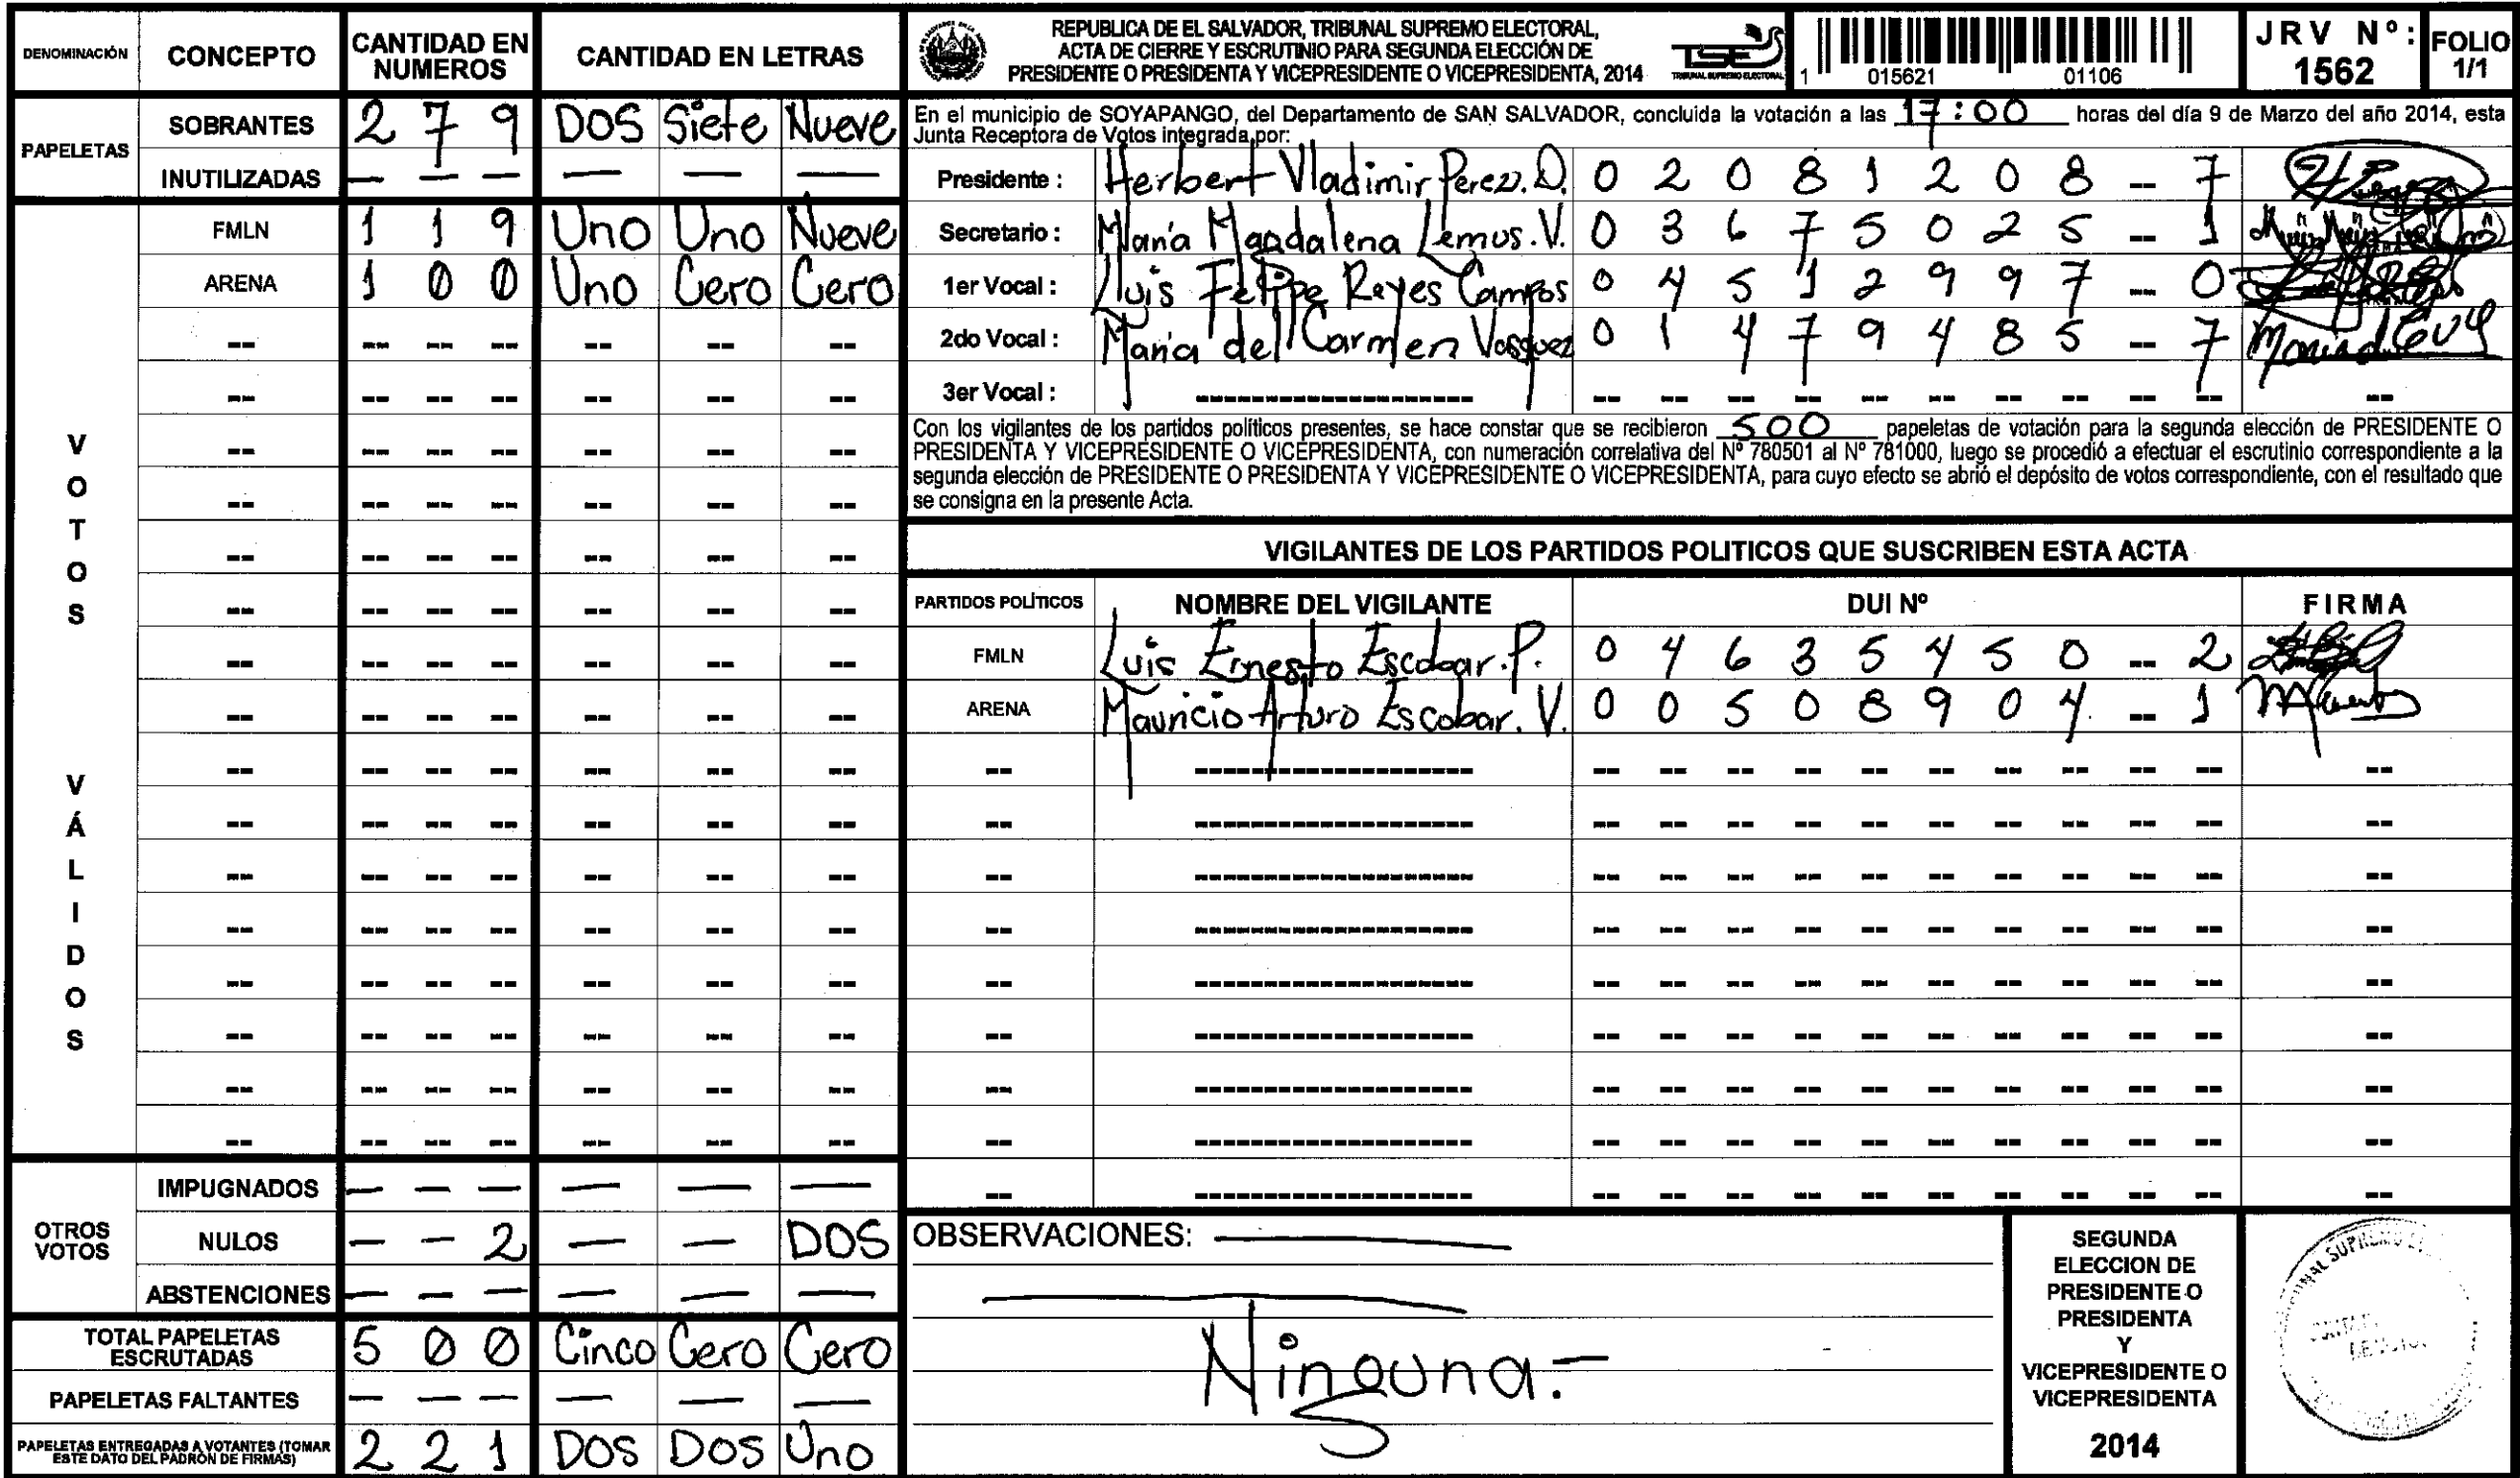 DENOMINACIÓN CONCEPTO CANTIDAD EN NUMEROS CANTIDAD EN LETRAS
PAPELETAS
SOBRANTES 2 7 9 DOS Siete Nueve
INUTILIZADAS — — — — — —
VOTOS VÁLIDOS
FMLN 1 1 9 Uno Uno Nueve
ARENA 1 0 0 Uno Cero Cero
OTROS VOTOS
IMPUGNADOS — — — — — —
NULOS — — 2 — — DOS
ABSTENCIONES — — — — — —
TOTAL PAPELETAS ESCRUTADAS 5 0 0 Cinco Cero Cero
PAPELETAS FALTANTES — — — — — —
PAPELETAS ENTREGADAS A VOTANTES (TOMAR ESTE DATO DEL PADRÓN DE FIRMAS) 2 2 1 DOS DOS Uno
REPUBLICA DE EL SALVADOR, TRIBUNAL SUPREMO ELECTORAL,
ACTA DE CIERRE Y ESCRUTINIO PARA SEGUNDA ELECCIÓN DE
PRESIDENTE O PRESIDENTA Y VICEPRESIDENTE O VICEPRESIDENTA, 2014
TSE
TRIBUNAL SUPREMO ELECTORAL
1 015621 01106
JRV Nº: 1562
FOLIO 1/1
En el municipio de SOYAPANGO, del Departamento de SAN SALVADOR, concluida la votación a las 17:00 horas del día 9 de Marzo del año 2014, esta
Junta Receptora de Votos integrada por:
Presidente : Herbert Vladimir Perez. D. 0 2 0 8 1 2 0 8 -- 7
Secretario : María Magdalena Lemus. V. 0 3 6 7 5 0 2 5 -- 1
1er Vocal : Luis Felipe Reyes Campos 0 4 5 1 2 9 9 7 -- 0
2do Vocal : María del Carmen Vasquez 0 1 4 7 9 4 8 5 -- 7
3er Vocal : --
Con los vigilantes de los partidos políticos presentes, se hace constar que se recibieron 500 papeletas de votación para la segunda elección de PRESIDENTE O
PRESIDENTA Y VICEPRESIDENTE O VICEPRESIDENTA, con numeración correlativa del Nº 780501 al Nº 781000, luego se procedió a efectuar el escrutinio correspondiente a la
segunda elección de PRESIDENTE O PRESIDENTA Y VICEPRESIDENTE O VICEPRESIDENTA, para cuyo efecto se abrió el depósito de votos correspondiente, con el resultado que
se consigna en la presente Acta.
VIGILANTES DE LOS PARTIDOS POLITICOS QUE SUSCRIBEN ESTA ACTA
PARTIDOS POLÍTICOS NOMBRE DEL VIGILANTE DUI Nº FIRMA
FMLN Luis Ernesto Escobar. P. 0 4 6 3 5 4 5 0 -- 2
ARENA Mauricio Arturo Escobar. V. 0 0 5 0 8 9 0 4 -- 1
OBSERVACIONES:
Ninguna.-
SEGUNDA
ELECCION DE
PRESIDENTE O
PRESIDENTA
Y
VICEPRESIDENTE O
VICEPRESIDENTA
2014